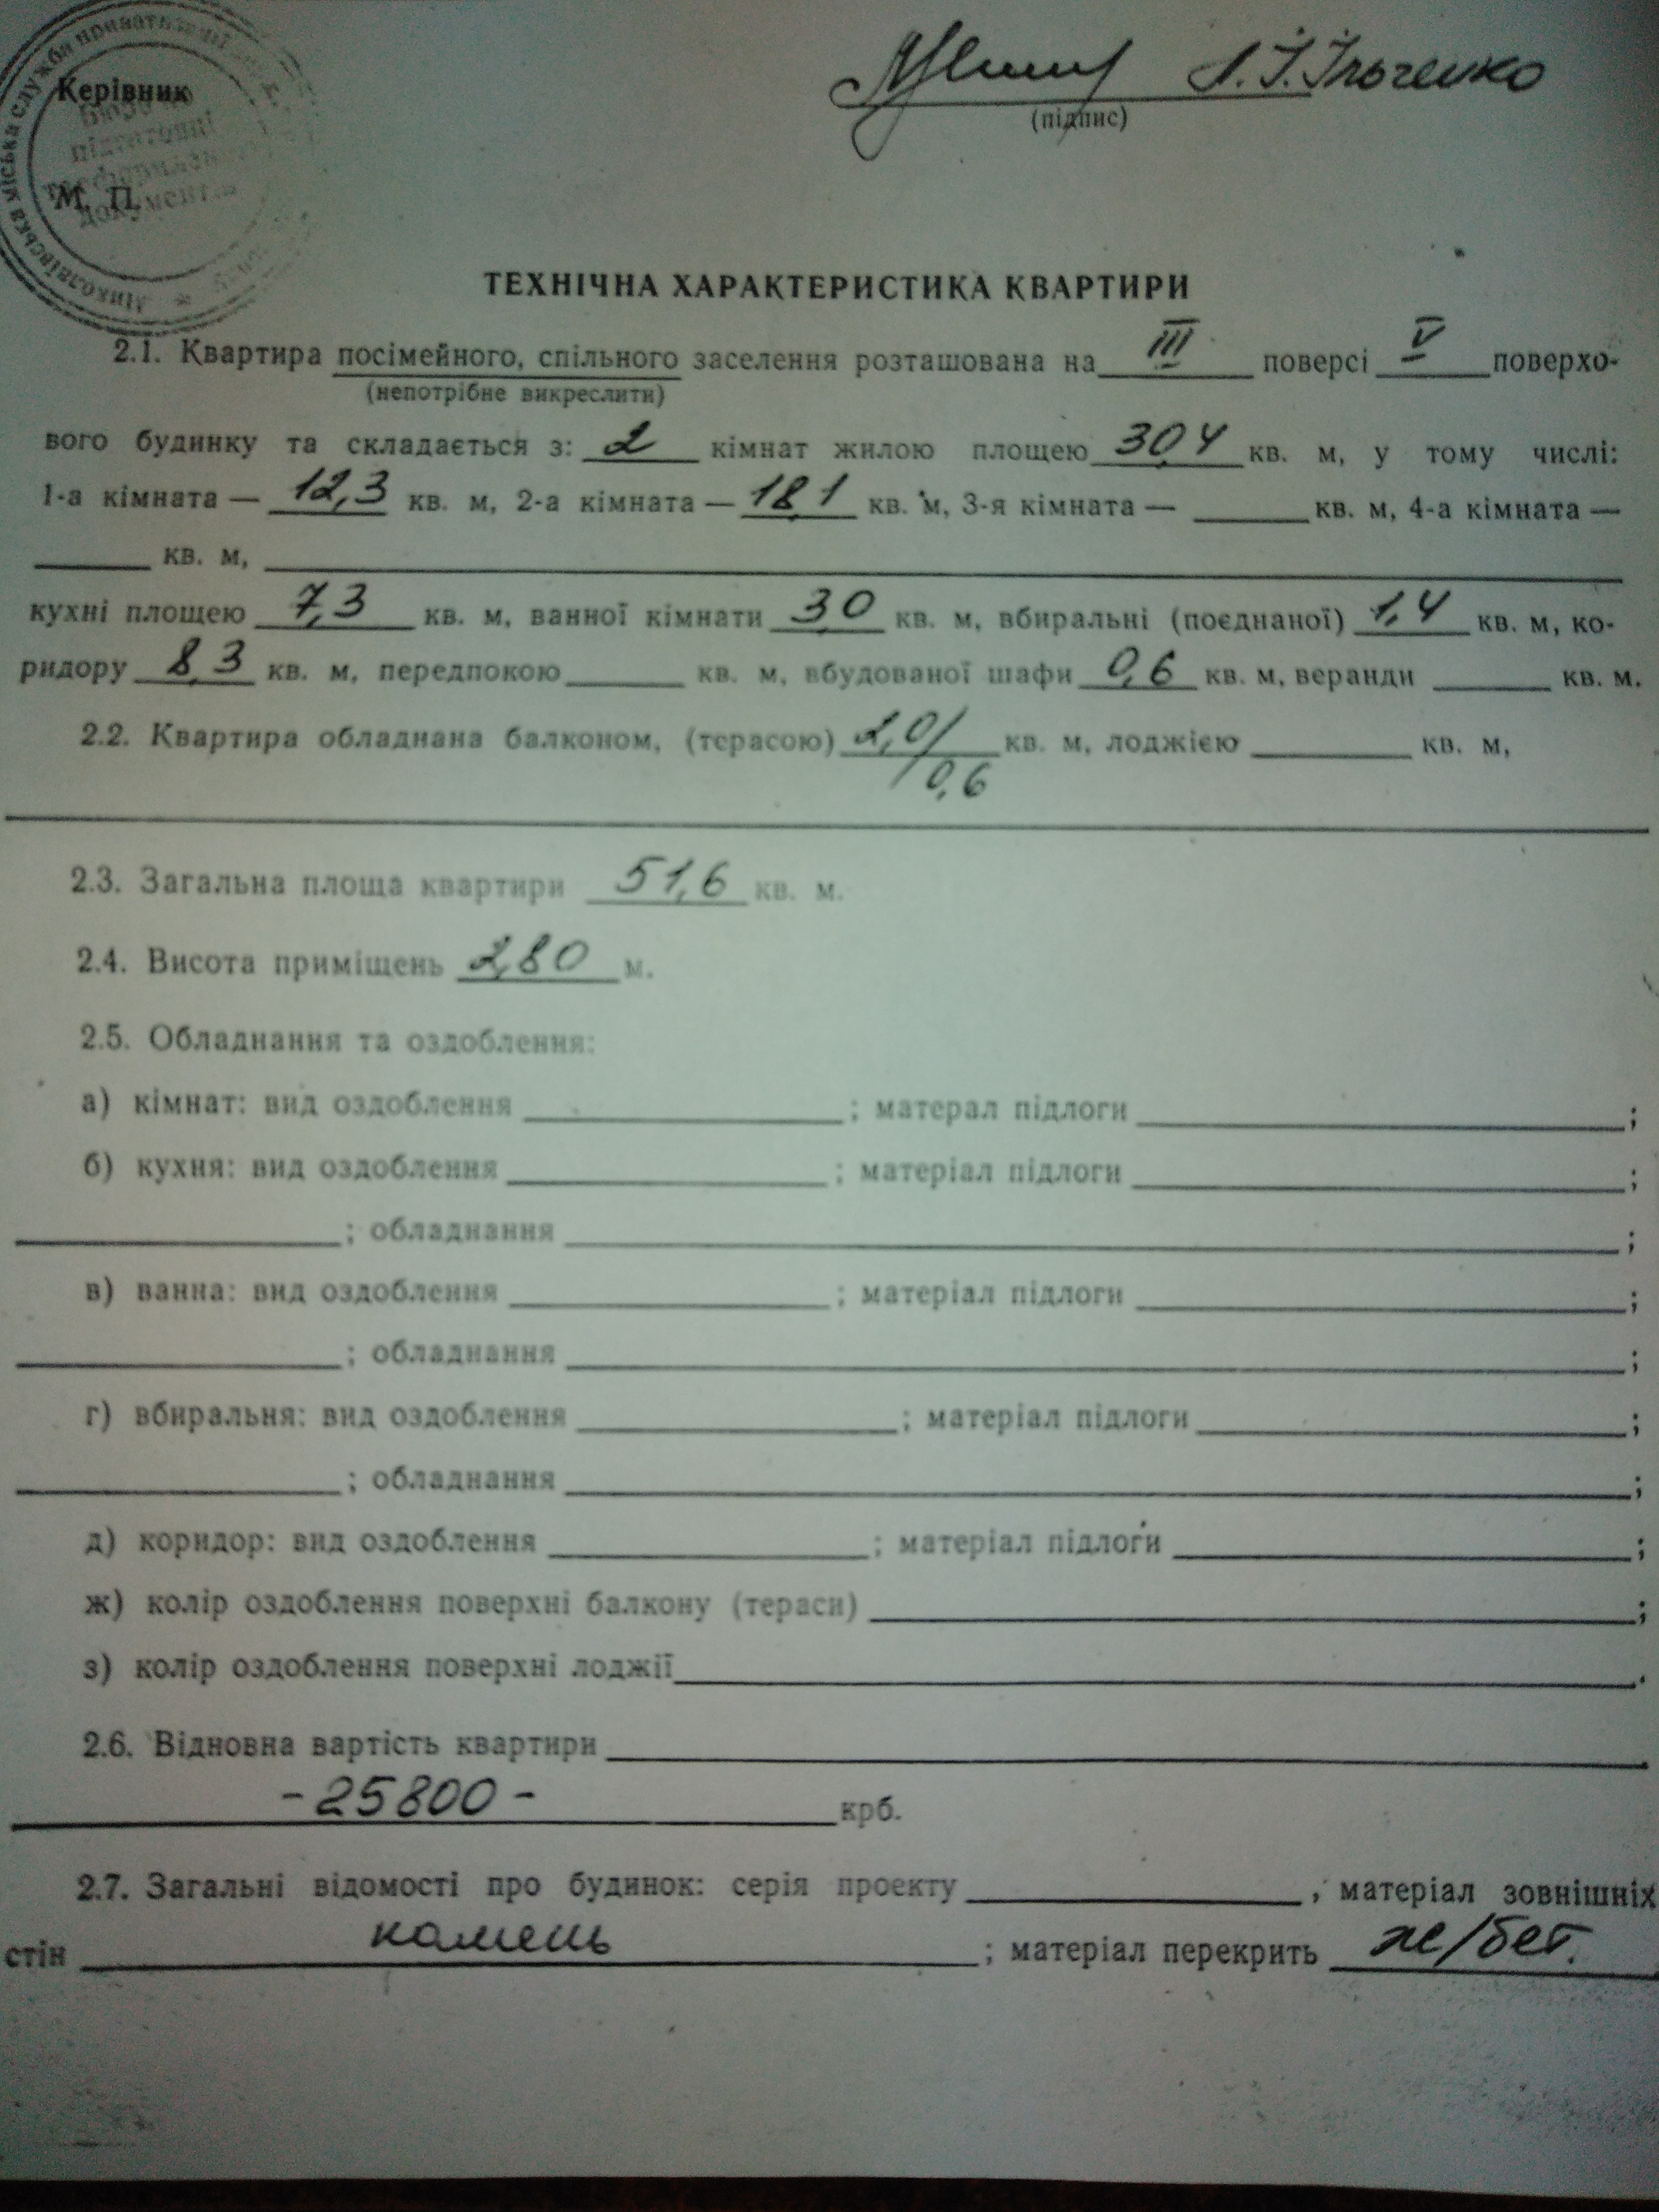 Миколаївська міська служба приватизації
Керівник
Бюро
підготовки
документів
М. П.
Л.І.Ільченко
(підпис)
ТЕХНІЧНА ХАРАКТЕРИСТИКА КВАРТИРИ
2.1. Квартира посімейного, спільного заселення розташована на III поверсі V поверхо-
(непотрібне викреслити)
вого будинку та складається з: 2 кімнат жилою площею 30,4 кв. м, у тому числі:
1-а кімната — 12,3 кв. м, 2-а кімната — 18,1 кв. м, 3-я кімната — ______ кв. м, 4-а кімната —
______ кв. м, ______
кухні площею 7,3 кв. м, ванної кімнати 3,0 кв. м, вбиральні (поєднаної) 1,4 кв. м, ко-
ридору 8,3 кв. м, передпокою ______ кв. м, вбудованої шафи 0,6 кв. м, веранди ______ кв. м.
2.2. Квартира обладнана балконом, (терасою) 2,0/0,6 кв. м, лоджією ______ кв. м,
2.3. Загальна площа квартири 51,6 кв. м.
2.4. Висота приміщень 2,80 м.
2.5. Обладнання та оздоблення:
а) кімнат: вид оздоблення ______ ; матерал підлоги ______ ;
б) кухня: вид оздоблення ______ ; матеріал підлоги ______ ;
______ ; обладнання ______ ;
в) ванна: вид оздоблення ______ ; матеріал підлоги ______ ;
______ ; обладнання ______ ;
г) вбиральня: вид оздоблення ______ ; матеріал підлоги ______ ;
______ ; обладнання ______ ;
д) коридор: вид оздоблення ______ ; матеріал підлоги ______ ;
ж) колір оздоблення поверхні балкону (тераси) ______ ;
з) колір оздоблення поверхні лоджії ______ .
2.6. Відновна вартість квартири ______
- 25800 - крб.
2.7. Загальні відомості про будинок: серія проекту ______ , матеріал зовнішніх
стін камень ; матеріал перекрить ж/бет.